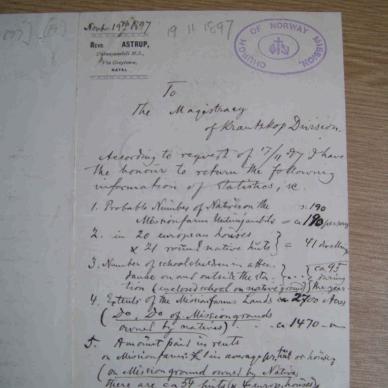 Novbr 19th 1897
19 11 1897
Revd ASTRUP,
Untunjambili M.S.,
Via Greytown,
NATAL
CHURCH OF NORWAY MISSION.
To
The Magistracy
of Krantzkop Division.
According to request of 17/11 97 I have
the honour to return the following
information of statistics, &c.
1. Probable Number of Natives on the
Missionfarm Untunjambili = ca 190 persons
2. in 20 european houses
& 21 round native huts } = 41 dwellings
3. Number of schoolchildren in atten-
dance on and outside the sta- ca 95
tion (enclosed school on native ground) during the year
4. Extents of the Missionfarms Lands ca 2700 Acres
(Do, Do of Missiongrounds
owned by natives) ca 1470
5. Amount paid in rents
on Missionfarm £1 in average pr hut or house
(on Missionground owned by Natives
There are ca 54 huts & 4 europ. houses